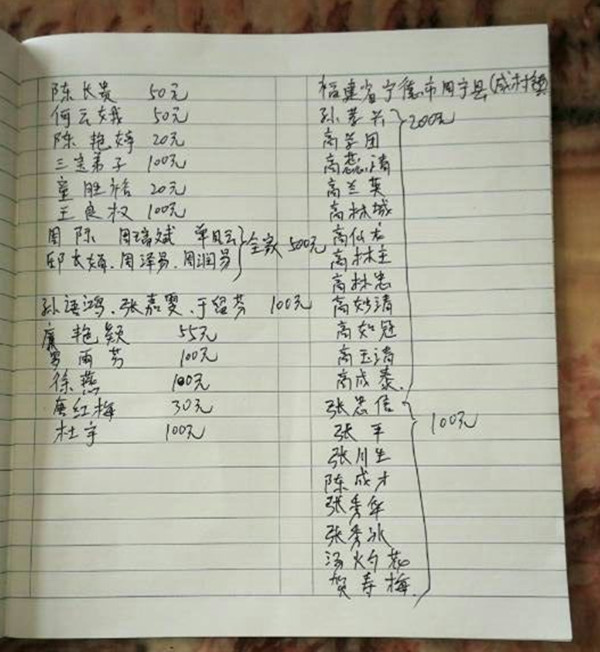 陈长贵 50元
何云娥 50元
陈艳婷 20元
三宝弟子 100元
童胜裕 20元
王良权 100元
周陈 周瑞斌 单月云
邱长娥、周泽易、周润易 全家 500元
孙语鸿、张嘉雯、于绍芬 100元
廉艳颖 55元
罗雨芳 100元
徐燕 100元
唐红梅 30元
杜宇 100元
福建省宁德市周宁县(咸村镇)
孙孝兴 200元
高学团
高蕊清
高兰英
高林城
高仙龙
高林主
高林忠
高妙清
高如冠
高玉清
高成泰
张忠信
张平 100元
张川生
陈成才
张秀华
张秀冰
汤火
贺寿梅